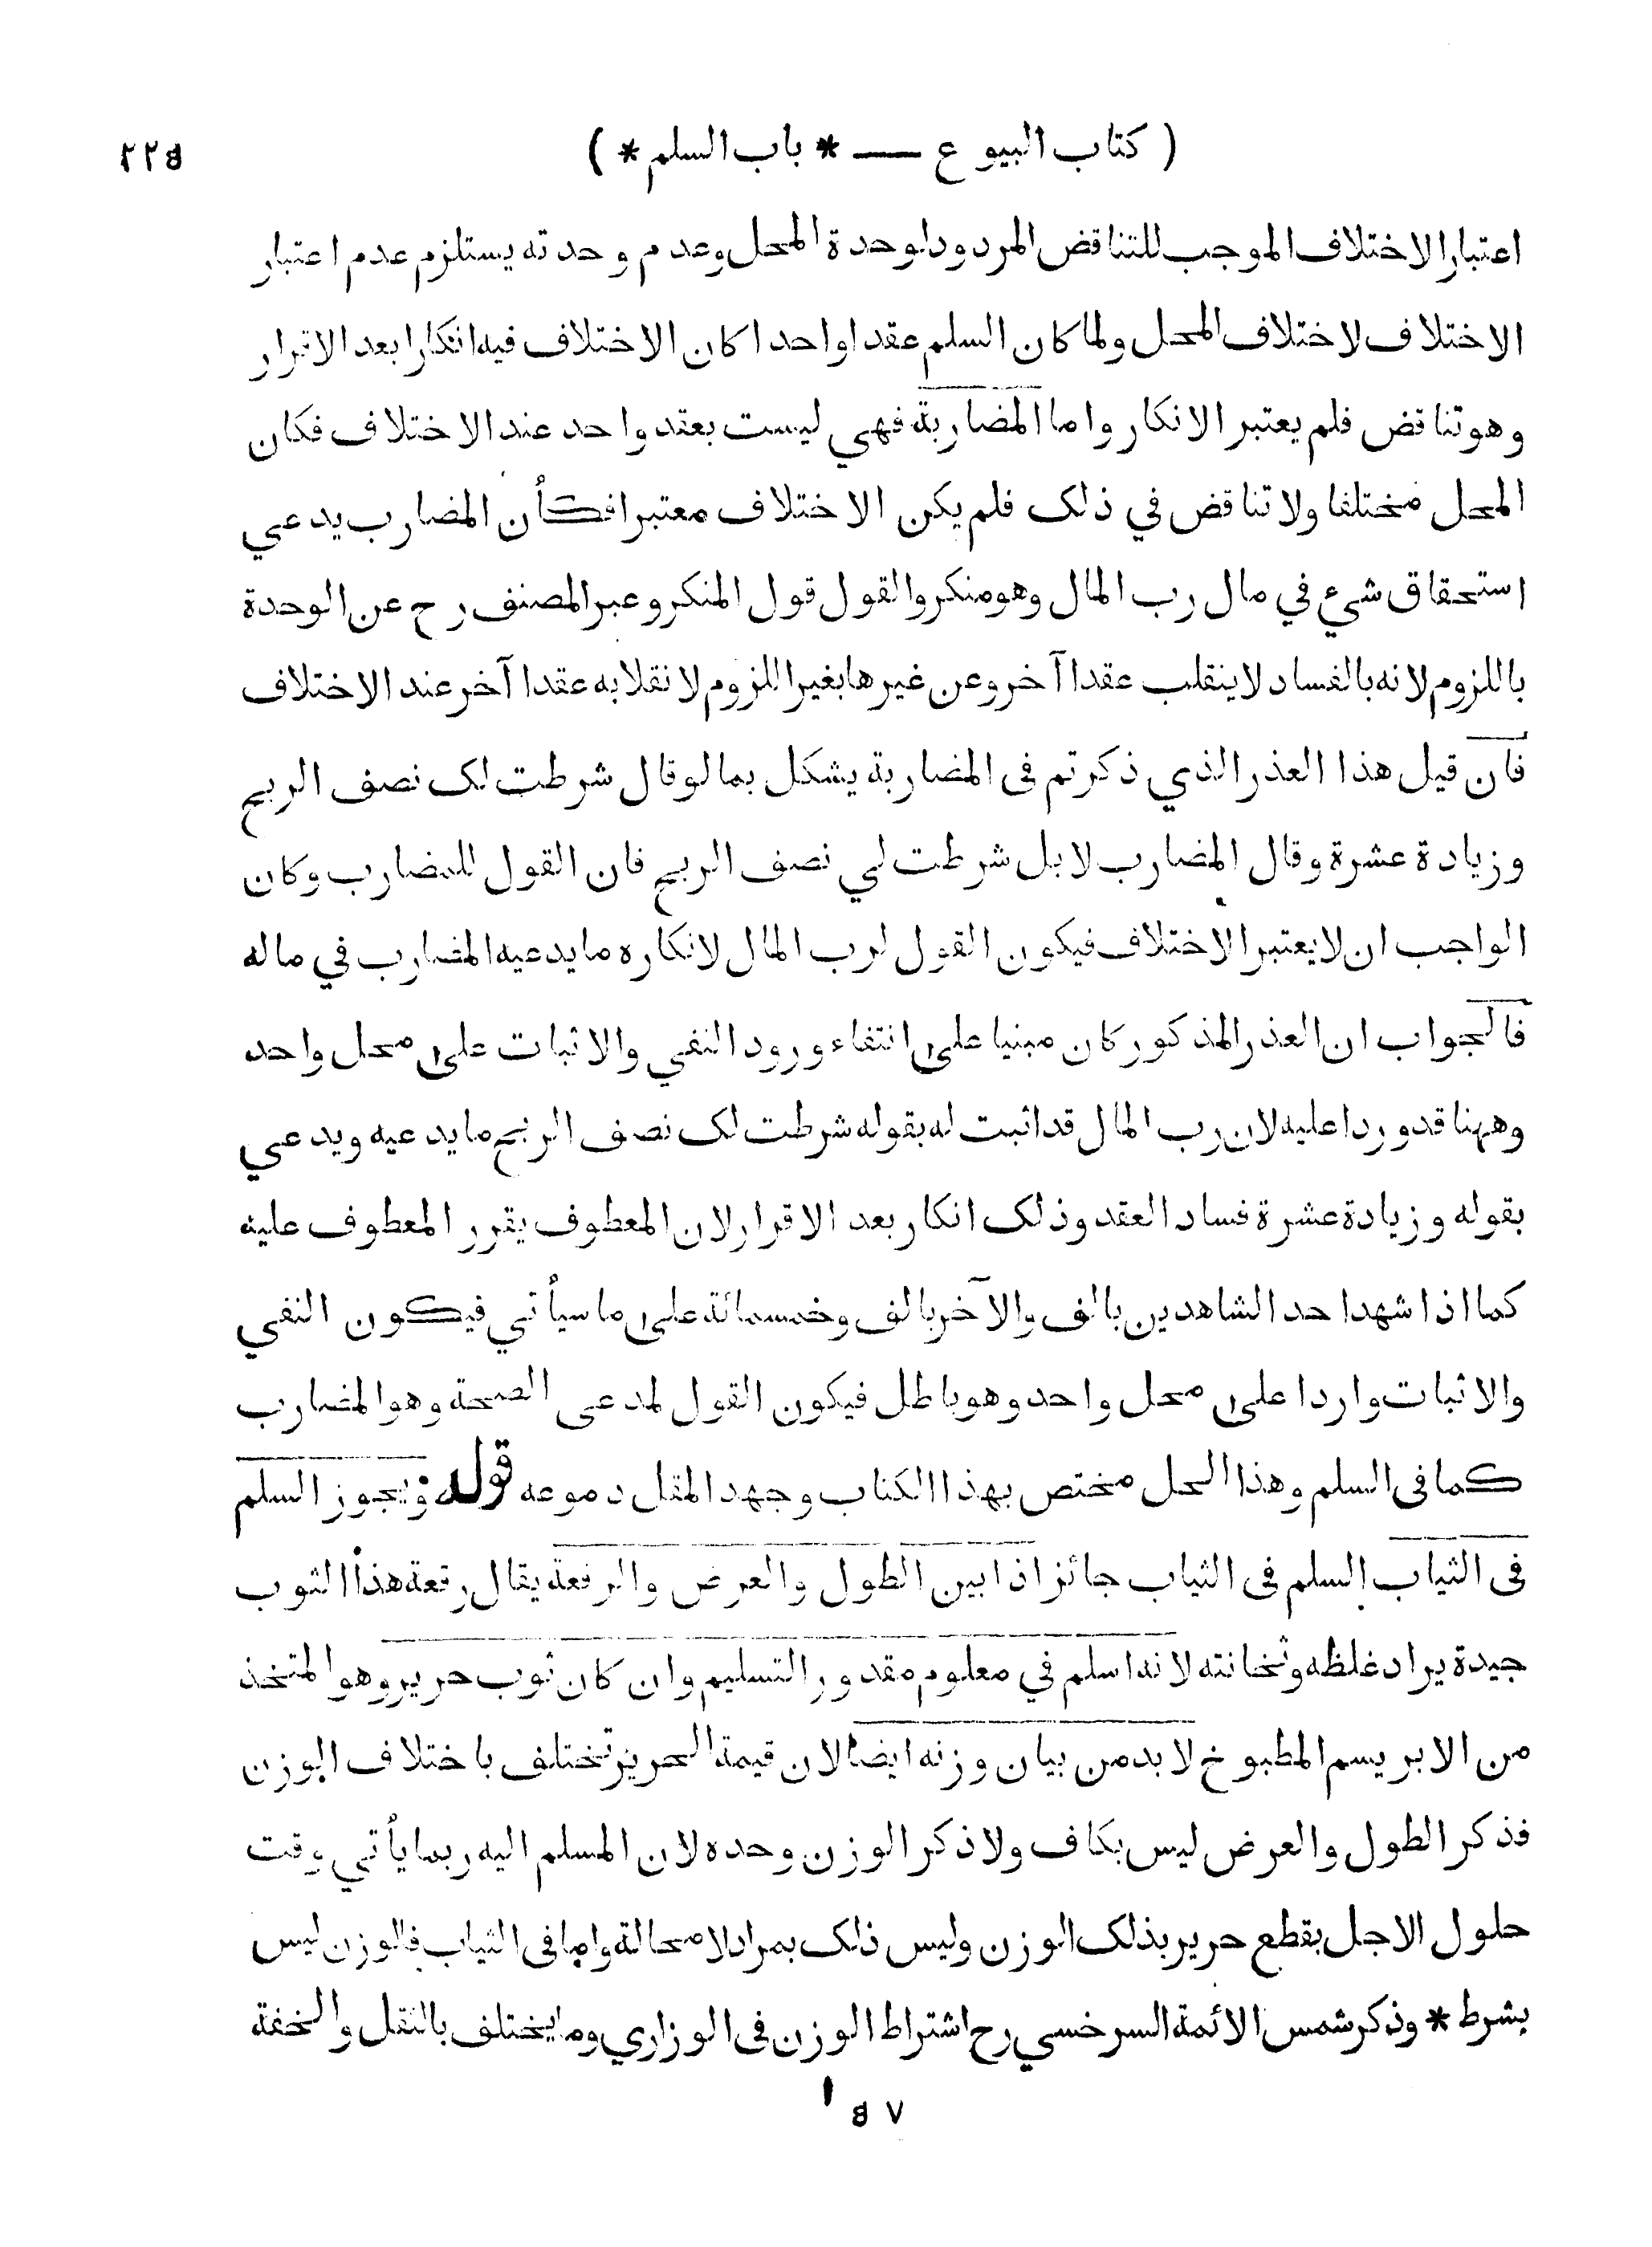 ( كتاب البيوع — * باب السلم * ) ٢٢٥
اعتبار الاختلاف الموجب للتناقض المردود لوحدة المحل وعدم وحدته يستلزم عدم اعتبار
الاختلاف لاختلاف المحل ولما كان السلم عقدا واحدا كان الاختلاف فيه انكارا بعد الاقرار
وهو تناقض فلم يعتبر الانكار واما المضاربة فهي ليست بعقد واحد عند الاختلاف فكان
المحل مختلفا ولا تناقض في ذلك فلم يكن الاختلاف معتبرا فكأن المضارب يدعي
استحقاق شيء في مال رب المال وهو منكر والقول قول المنكر وعبر المصنف رح عن الوحدة
باللزوم لانه بالفساد لا ينقلب عقدا آخر وعن غيرها بغير اللزوم لانقلابه عقدا آخر عند الاختلاف
فان قيل هذا العذر الذي ذكرتم فى المضاربة يشكل بما لو قال شرطت لك نصف الربح
وزيادة عشرة وقال المضارب لا بل شرطت لي نصف الربح فان القول للمضارب وكان
الواجب ان لا يعتبر الاختلاف فيكون القول لرب المال لانكاره ما يدعيه المضارب في ماله
فالجواب ان العذر المذكور كان مبنيا على انتفاء ورود النفي والاثبات على محل واحد
وههنا قد وردا عليه لان رب المال قد اثبت له بقوله شرطت لك نصف الربح ما يدعيه ويدعي
بقوله وزيادة عشرة فساد العقد وذلك انكار بعد الاقرار لان المعطوف يقرر المعطوف عليه
كما اذا شهد احد الشاهدين بالف والآخر بالف وخمسمائة على ما سيأتي فيكون النفي
والاثبات واردا على محل واحد وهو باطل فيكون القول لمدعى الصحة وهو المضارب
كما فى السلم وهذا الحل مختص بهذا الكتاب وجهد المقل دموعه قوله ويجوز السلم
فى الثياب السلم فى الثياب جائز اذا بين الطول والعرض والرقعة يقال رقعة هذا الثوب
جيدة يراد غلظه وثخانته لانه اسلم في معلوم مقدور التسليم وان كان ثوب حرير وهو المتخذ
من الابريسم المطبوخ لا بد من بيان وزنه ايضا لان قيمة الحرير تختلف باختلاف الوزن
فذكر الطول والعرض ليس بكاف ولا ذكر الوزن وحده لان المسلم اليه ربما يأتي وقت
حلول الاجل بقطع حرير بذلك الوزن وليس ذلك بمراد لا محالة واما فى الثياب فالوزن ليس
بشرط * وذكر شمس الائمة السرخسي رح اشتراط الوزن فى الوزاري وما يختلف بالثقل والخفة
٥٧